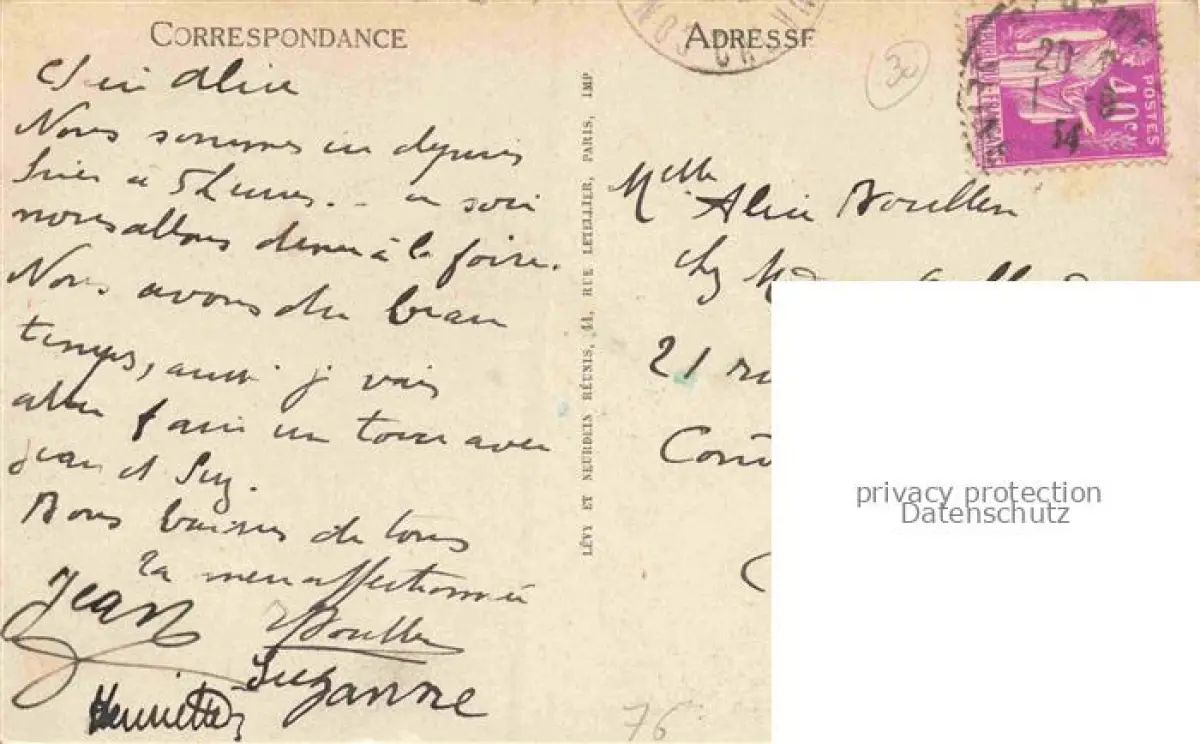 CORRESPONDANCE
Alice
Nous sommes ici depuis
hier à 5 heures. - ce soir
nous allons diner à la foire.
Nous avons du beau
temps, aussi je vais
aller faire un tour avec
Jean et Suz.
Bons baisers de tous
Ta mère affectionnée
Jean
Suzanne
Henriette
LÉVY ET NEURDEIN RÉUNIS, 44, RUE LETELLIER, PARIS, IMP
ADRESSE
30
20
34
POSTES
40c
RÉPUBLIQUE FRANÇAISE
Melle Alice
chez
21 ru
76
privacy protection
Datenschutz